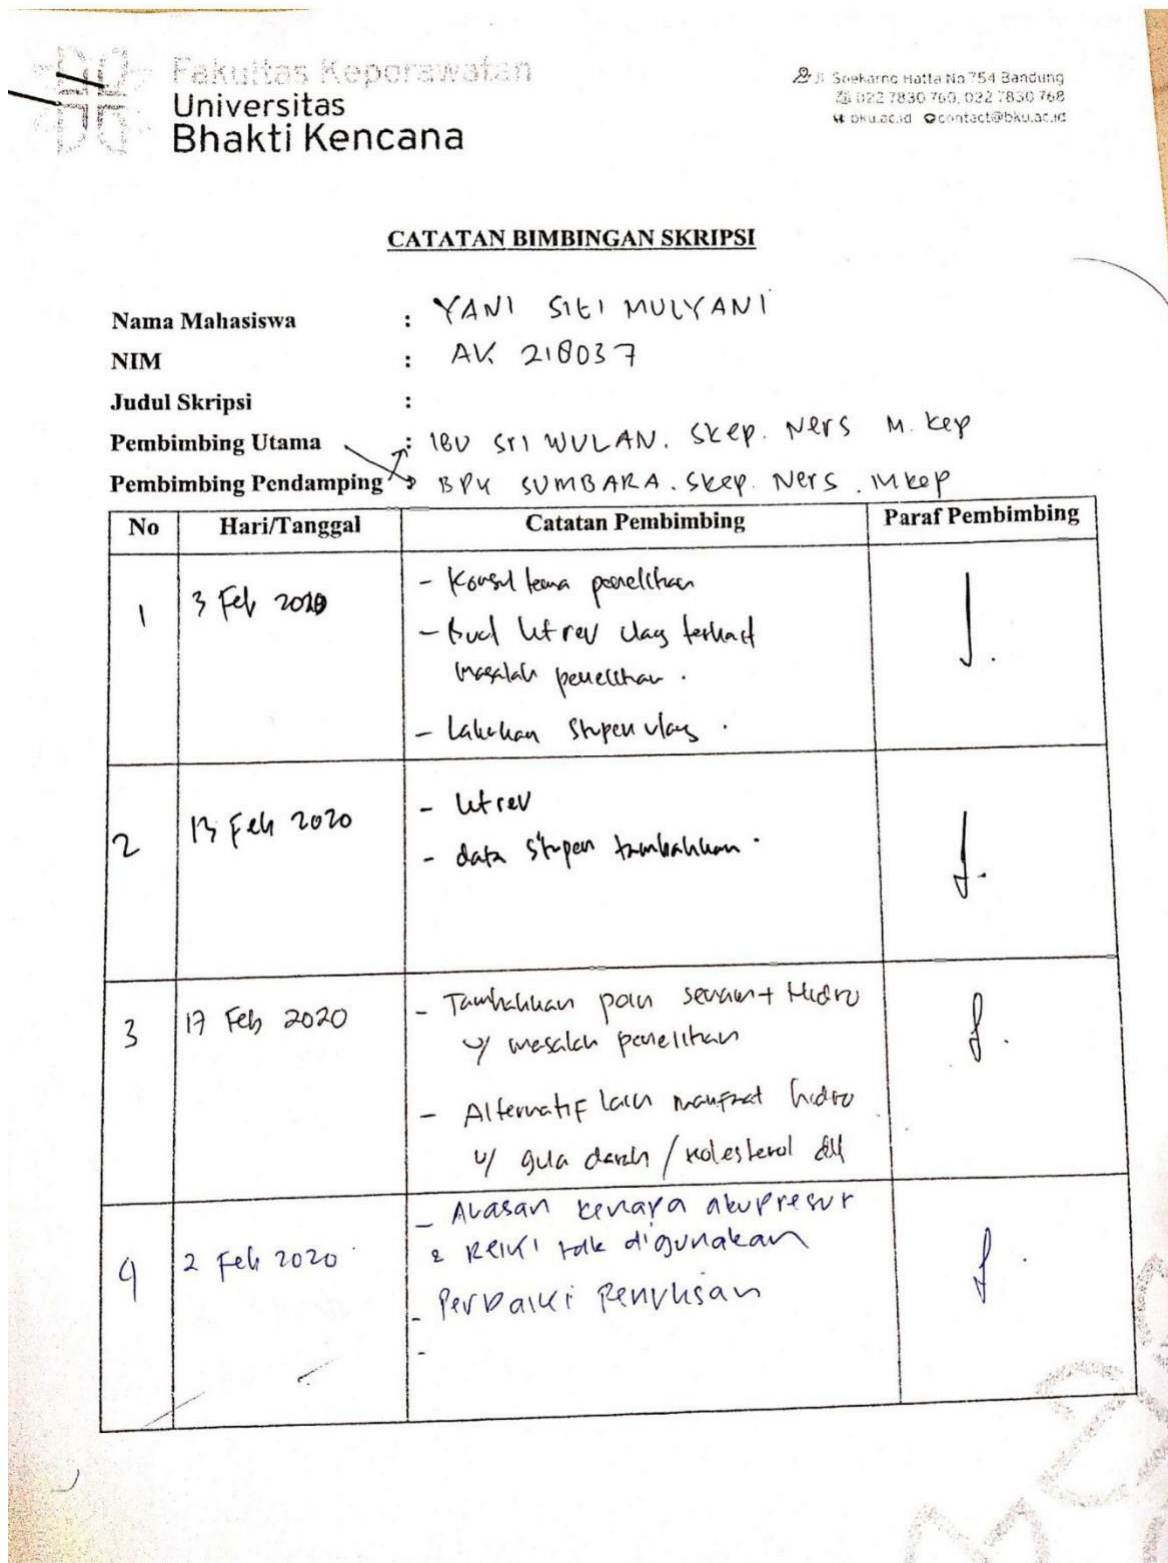 Fakultas Keperawatan
Universitas
Bhakti Kencana
Jl Soekarno Hatta No 754 Bandung
022 7830 760, 022 7830 768
bku.ac.id contact@bku.ac.id
CATATAN BIMBINGAN SKRIPSI
Nama Mahasiswa : YANI SITI MULYANI
NIM : AK 218037
Judul Skripsi :
Pembimbing Utama : IBU SRI WULAN. Skep. Ners M. Kep
Pembimbing Pendamping BPK SUMBARA. Skep. Ners. M kep
No Hari/Tanggal Catatan Pembimbing Paraf Pembimbing
1 3 Feb 2020
- Konsul tema penelitian
- litrev terkait
masalah penelitian.
- Lakukan stupen
2 13 Feb 2020
- litrev
- data stupen tambahkan.
3 17 Feb 2020
- Tambahkan poin Hidro
u/ masalah penelitian
- Alternatif lain manfaat hidro
u/ gula darah / kolesterol dll
4 2 Feb 2020
- Alasan kenapa akupresur
& Reiki tdk digunakan
- Perbaiki Penulisan
-